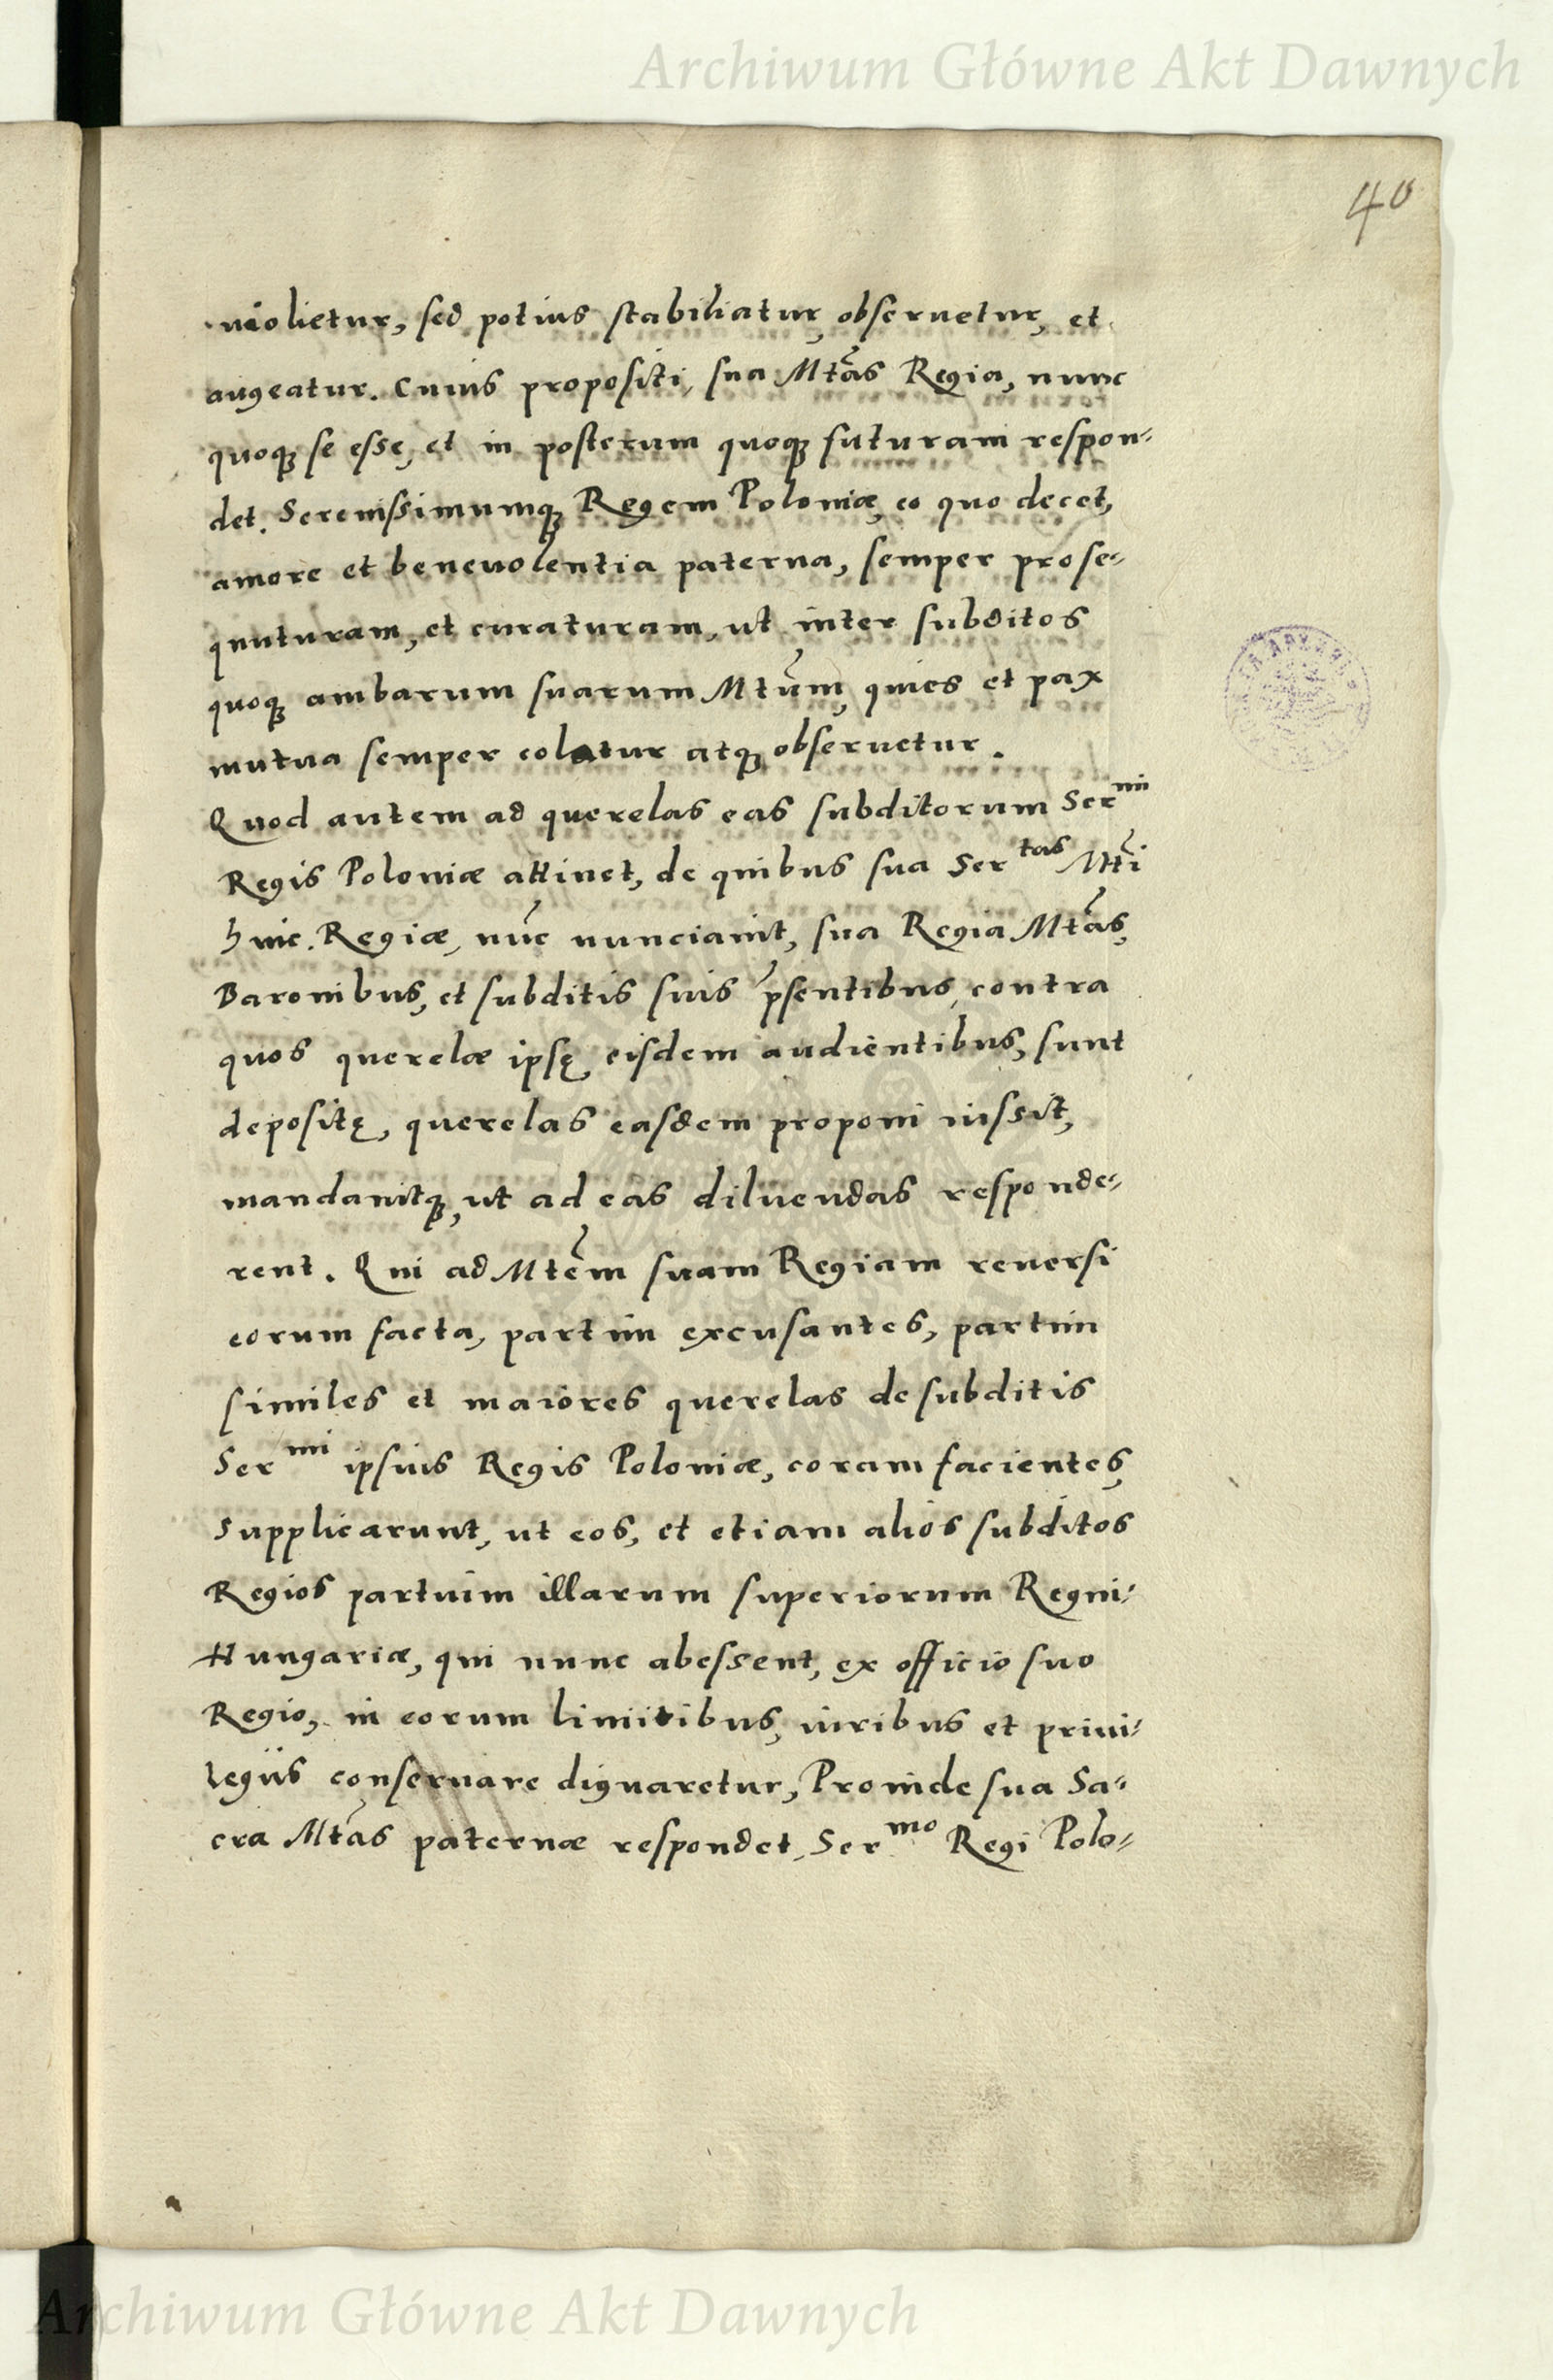 Archiwum Główne Akt Dawnych
40
uiolietur, sed potius stabiliatur, obseruetur, et
augeatur. Cuius propositi, sua Mtas Regia, nunc
quoq; se esse, et in posterum quoq; futuram respon-
det. Serenissimumq; Regem Poloniæ, eo quo decet,
amore et beneuolentia paterna, semper prose-
quuturam, et curaturam, ut inter subditos
quoq; ambarum suarum Mtum, quies et pax
mutua semper colatur atq; obseruetur.
Quod autem ad querelas eas subditorum Sermi
Regis Poloniæ attinet, de quibus sua Sertas Mti
huic. Regiæ, nuc nunciauit, sua Regia Mtas,
Baronibus, et subditis suis psentibus, contra
quos querelæ ipsę, eisdem audientibus, sunt
depositę, querelas easdem proponi iussit,
mandauitq;, ut ad eas diluendas responde-
rent. Qui ad Mtem suam Regiam reuersi
eorum facta, partim excusantes, partim
similes et maiores querelas de subditis
Sermi ipsius Regis Poloniæ, coram facientes,
Supplicarunt, ut eos, et etiam alios subditos
Regios partium illarum superiorum Regni
Hungariæ, qui nunc abessent, ex officio suo
Regio, in eorum limitibus, iuribus et priui-
legiis conseruare dignaretur, Proinde sua Sa-
cra Mtas paternæ respondet, Sermo Regi Polo-
Archiwum Główne Akt Dawnych